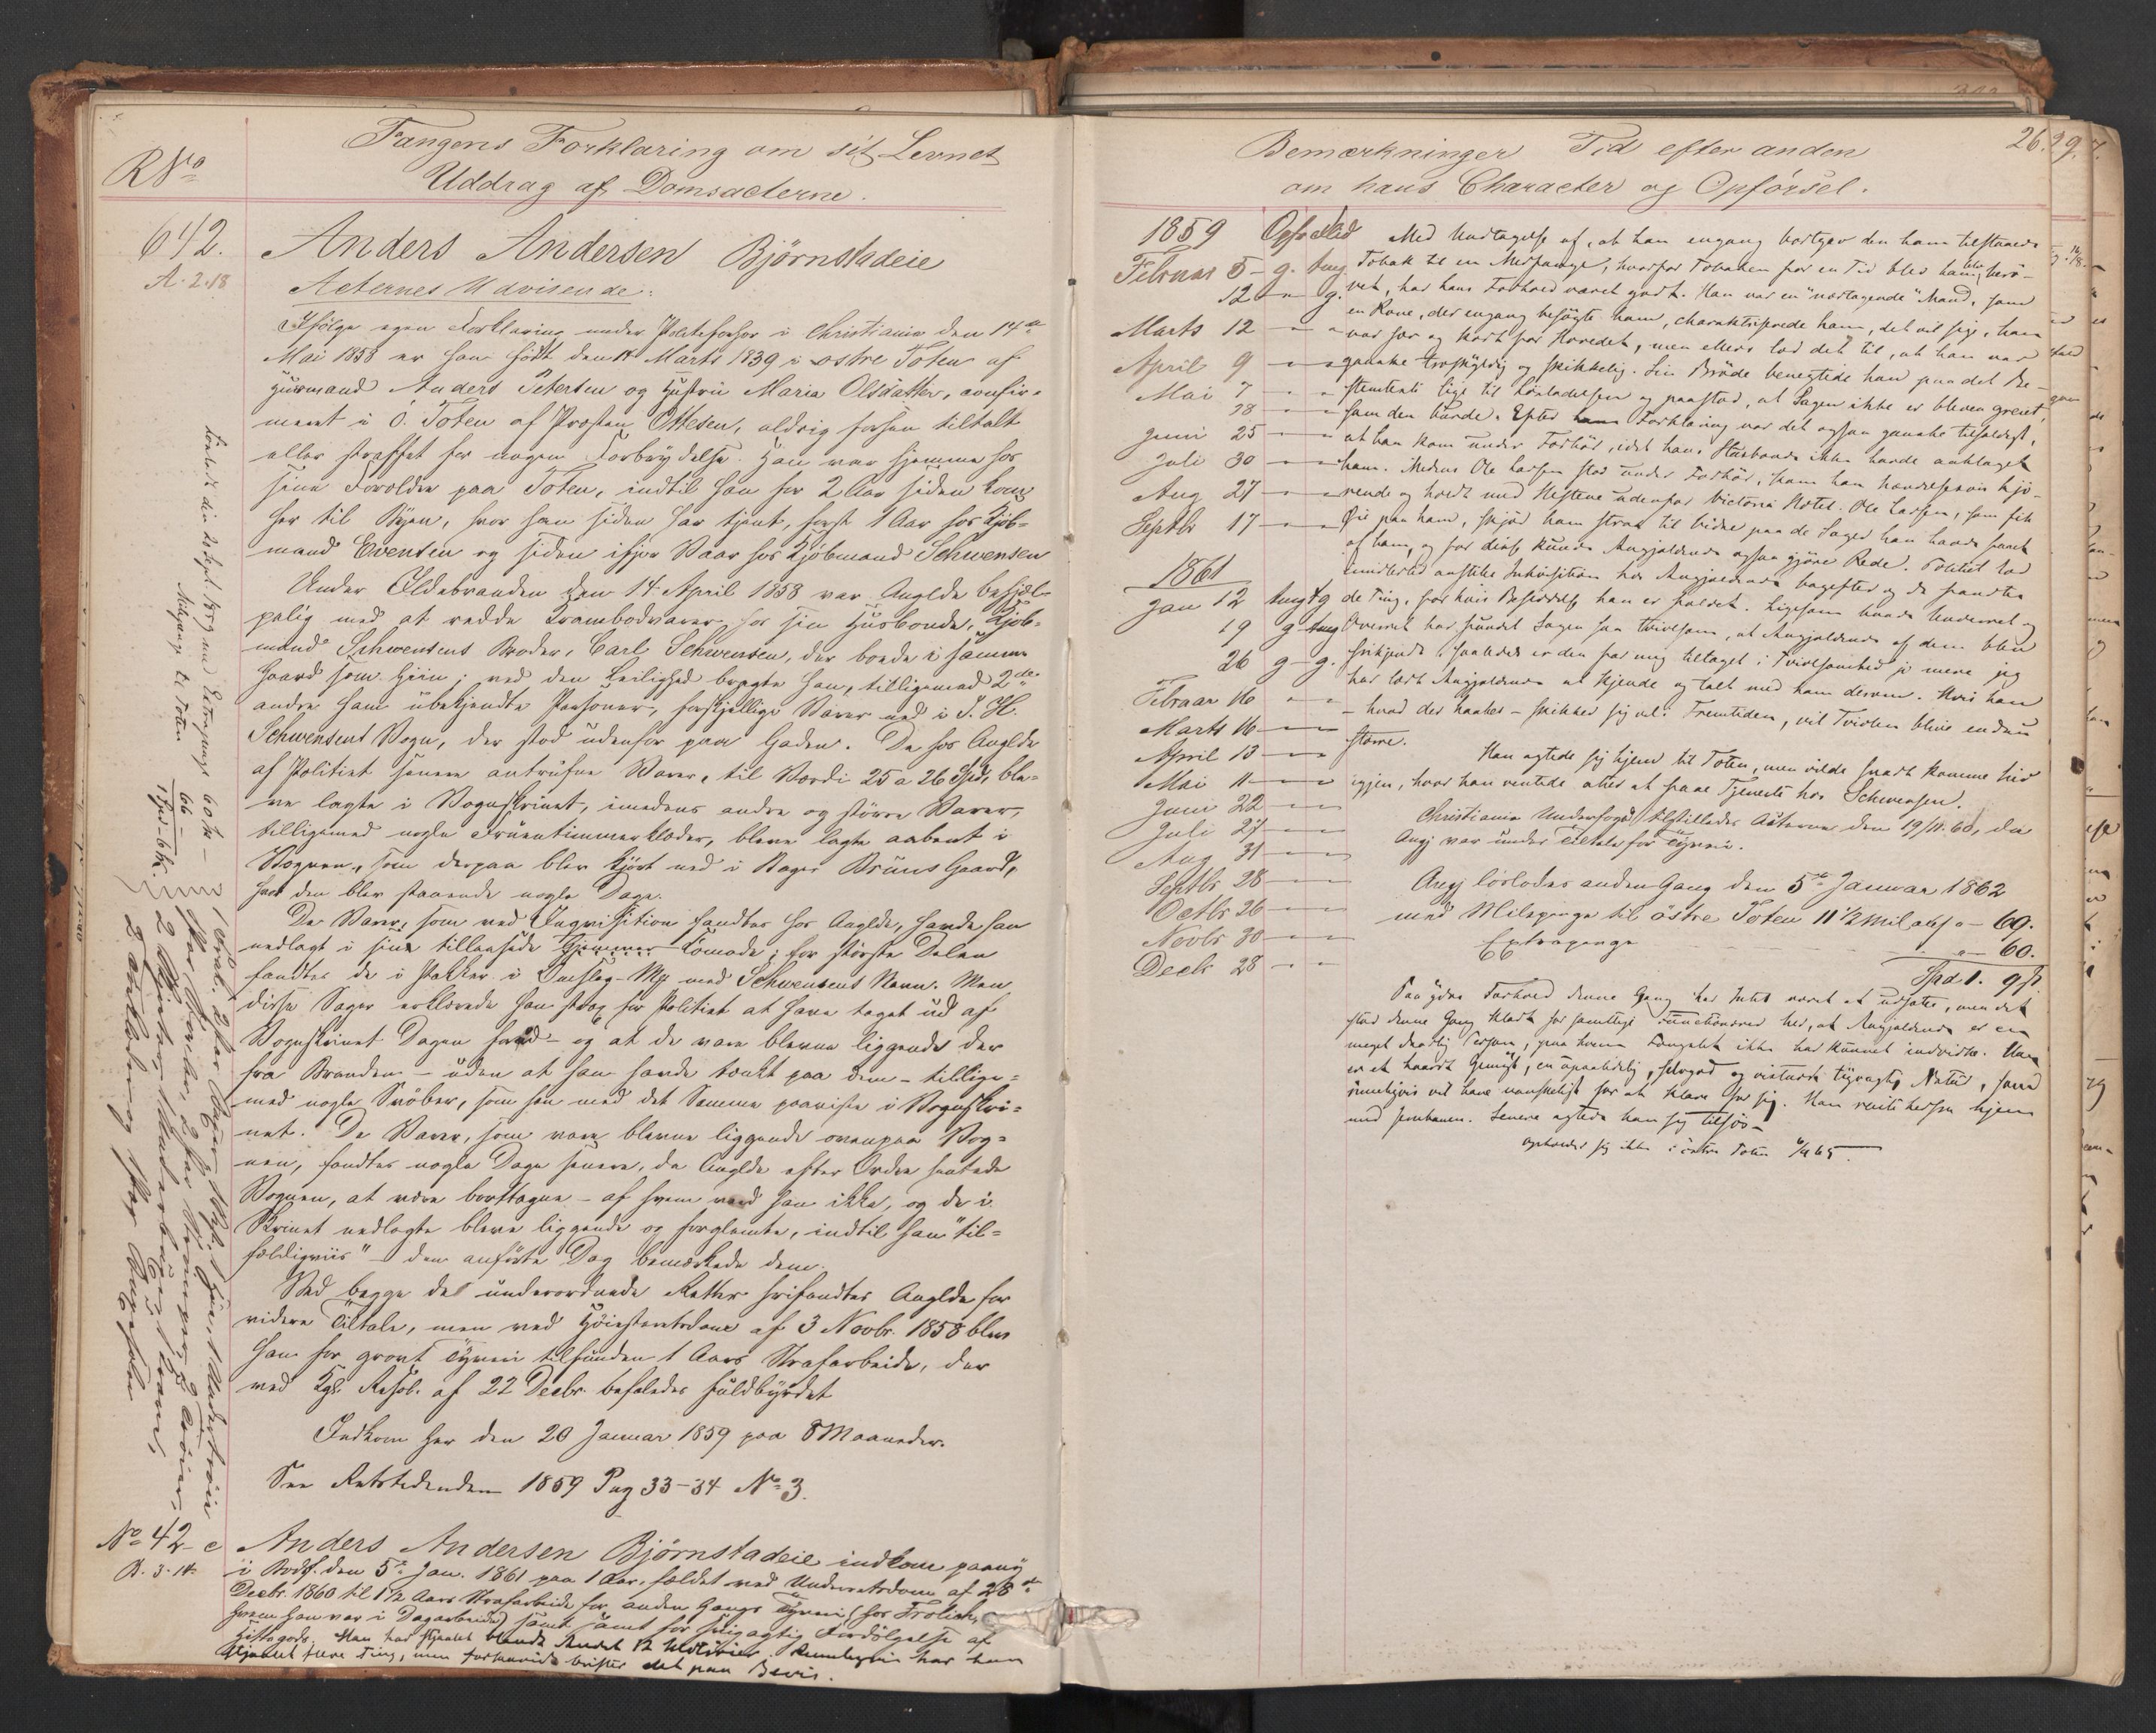 Fangens Forklaring om sit Levnet
RNo
Uddrag af Domsacterne.
642.
A. 2.18
Anders Andersen Björnstadeie
Acternes Udvisende:
Ifølge egen Forklaring under Politiforhør i Christiania den 14de
Mai 1858 er han født den Marts 1839 i østre Toten af
Huusmand Anders Petersen og Hustru Maria Olsdatter, confir-
meret i Ö. Toten af Provsten Ottesen, aldrig forhen tiltalt
eller straffet for nogen Forbrydelse. Han var hjemme hos
sine Forældre paa Toten, indtil han for 2 Aar siden kom
her til Byen, hvor han siden har tjent, først 1 Aar hos Kjöb-
mand Evensen og siden ifjor Vaar hos Kjöbmand Schwensen
Under Ildebranden den 14 April 1858 var Anglde behjæl-
pelig med at redde Krambodvarer hos sin Huusbonde, Kjöb-
mand Schwensens Broder, Carl Schwensen, der boede i samme
Gaard som Hiin; ved den Leilighed bragte han, tilligemed 2de
andre ham ubekjendte Personer, forskjellige Varer ned i J. H.
Schwensens Vogn, der stod udenfor paa Gaden. De hos Anglde
af Politiet senere antrufne Varer, til Værdi 25 a 26 Spd, ble-
ve lagte i Vognskrinet, imedens andre og større Varer,
tilligemed nogle Fruentimmerklæder, bleve lagte aabent i
Vognen, som derpaa blev kjört ned i Bager Bruns Gaard,
hvor den blev staaende nogle Dage.
De Varer, som ved Inqvisition fandtes hos Anglde, havde han
nedlagt i sine tillaasede Gjemmer Comode; for største Delen
fandtes de i Pakker i Omslag med Schwensens Navn. Men
disse Sager erklærede han strax for Politiet at have taget ud af
Vognskrinet Dagen forud - og at de vare blevne liggende der
fra Branden - uden at han havde tænkt paa dem - tillige-
med nogle Snöber, som han med det Samme paaviste i Vognskri-
net. De Varer, som vare blevne liggende ovenpaa Vog-
nen, fandtes nogle Dage senere, da Anglde efter Ordre hentede
Vognen, at være borttagne - af hvem veed han ikke, og de i
Skrinet nedlagte bleve liggende og forglemte, indtil han "til-
fældigviis" den anførte Dag bemærkede dem.
Ved begge de underordnede Retter frifandtes Anglde for
videre Tiltale, men ved Höiesteretsdom af 3 Novbr. 1858 blev
han for grovt Tyveri tilfunden 1 Aars Strafarbeide, der
ved Kgl. Resol. af 22 Decbr. befaledes fuldbyrdet
Indkom her den 20 Januar 1859 paa 8 Maaneder.
See Retstidenden 1859 Pag 33-34 No 3.
No 42 c
B. 3.14
Anders Andersen Björnstadeie indkom paany
i Bodsf. den 5te Jan. 1861 paa 1 Aar, fældet ved Underretsdom af 28de
Decbr. 1860 til 1 1/2 Aars Strafarbeide for anden Gangs Tyveri (hos Frölich,
hvem han var i Dagarbeide) samt for svigagtig Fordölgelse af
Hittegods. Han har stjaalet blandt Andet 12 Rimeligviis har han
stjaalet flere Ting, men forsaavidt brister det paa Beviis.
Løsladt den 20 Sept. 1859 med Extrapenge 60 sk -
Milepenge til Toten 66 -
1 Spd - 6 sk.
Bemærkninger Tid efter anden
om hans Character og Opförsel.
26.
1859 Opf Flid
Februar 5 - g. tmg.
12 - " g.
Marts 12
April 9
Mai 7
28
Juni 25
Juli 30
Aug 27
Septbr 17
1861
Jan 12 tmg tg
19 g tmg
26 g - g.
Februar 16
Marts 16
April 13
Mai 11
Juni 22
Juli 27
Aug 31
Septbr 28
Octbr 26
Novbr 30
Decbr 28
Med Undtagelse af, at han engang bortgav den ham tilstaaede
Tobak til en Medfange, hvorfor Tobaken for en Tid blev ham berö-
vet, har hans Forhold været godt. Han var en "nærtagende" Mand, som
en Kone, der engang besögte ham, charakteriserede ham, det vil sige, han
var snar og kort for Hovedet, men ellers lod det til, at han var
ganske troskyldig og skikkelig. Sin Bröde benegtede han paa det Be-
stemteste lige til Løsladelsen og paastod, at Sagen ikke er bleven greiet,
som den burde. Efter hans Forklaring var det ogsaa ganske tilfældigt,
at han kom under Forhör, idet hans Huusbonde ikke havde anklaget
ham. Medens Ole Larsen stod under Forhör, kom han hændelsesviis kjö-
rende og holdt med Hestene udenfor Victoria Hotel. Ole Larsen, som fik
Öie paa ham, skjöd ham strax til Vidne paa de Sager han havde faaet
af ham, og for disse kunde Angjældende ogsaa gjöre Rede. Politiet lod
imidlertid anstille Inkvisition hos Angjældende bagefter og da fandtes
de Ting, for hvis Besiddelse han er fældet. Ligesom baade Underret og
Overret har fundet Sagen saa tvivlsom, at Angjældende af dem blev
frikjendt, saaledes er den for mig tiltaget i Tvivlsomhed jo mere jeg
har lært Angjældende at kjende og talt med ham derom. Hvis han
- hvad der haabes - skikker sig vel i Fremtiden, vil Tvivlen blive endnu
större.
Han agtede sig hjem til Toten, men vilde snart komme hid
igjen, hvor han ventede atter at faae Tjeneste hos Schwensen.
Christiania Underfoged tilstilledes Acterne den 19/11.60, da
Angj var under Tiltale for Tyveri.
Angj løslodes anden Gang den 5te Januar 1862
med Milepenge til östre Toten 11 1/2 Mil a 6 s - 69.
Extrapenge - 60.
Spd 1. 9 s.
Paa ydre Forhold denne Gang har Intet været at udsætte, men det
stod denne Gang klart for samtlige Functionærer her, at Angjældende er en
meget daarlig Person, paa hvem Fængslet ikke har kunnet indvirke. Han
er et haardt Gemyt, en upaalidelig, selvgod og tyvagtig Natur, som
rimeligvis vil have vanskeligt for at klare for sig. Han reiste herfra hjem
med Jernbanen. Senere agtede han sig tilsjös -
opholder sig ikke i östre Toten 65.